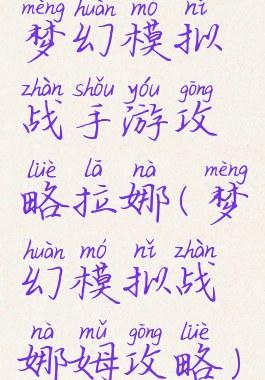 mèng huàn mó nǐ
梦幻模拟
zhàn shǒu yóu gōng
战手游攻
lüè lā nà mèng
略拉娜(梦
huàn mó nǐ zhàn
幻模拟战
nà mǔ gōng lüè
娜姆攻略)